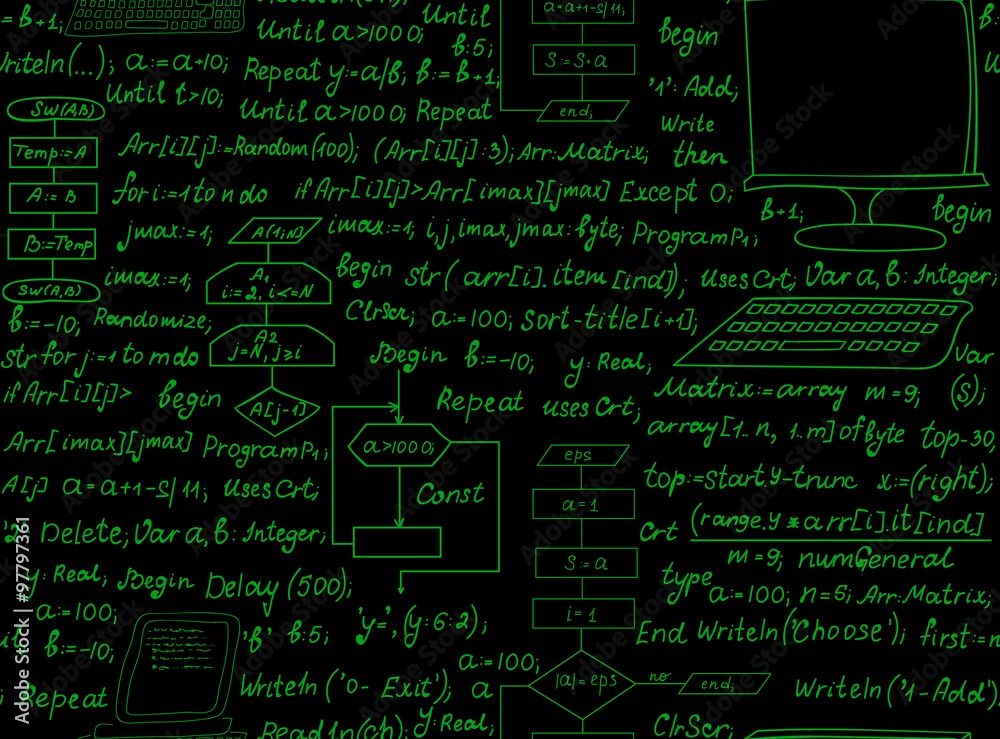 = b+1;
Until a>1000;
Until
b:5;
a:=a+1-s/11;
begin
Writeln(...); a:=a+10;
Repeat y:=a/b; b:=b+1;
S:=S+a
'1': Add;
Until t>10;
Until a>1000; Repeat
end;
Write
SW(A,B)
Temp:=A
A:=B
B:=Temp
SW(A,B)
Arr[i][j]:=Random(100); (Arr[i][j]:3); Arr:Matrix; then
for i:=1 to n do if Arr[i][j]>Arr[imax][jmax] Except 0;
b+1;
begin
jmax:=1;
A(1;N)
imax:=1; i,j,imax,jmax:byte; ProgramP1;
imax:=1;
A1
i:=2, i<=N
begin str(arr[i].item[ind]); uses Crt; Var a, b: Integer;
b:=-10; Randomize;
Clrscr; a:=100; sort-title[i+1];
A2
j=N, j≥i
str for j:=1 to m do
Begin b:=-10; y: Real;
Var
if Arr[i][j]> begin
A[j-1]
Repeat uses Crt;
Matrix:=array m=9; (S);
a>1000;
array[1..n, 1..m] of byte top-30,
Arr[imax][jmax] ProgramP1;
eps
top:=Start.y-trunc x:=(right);
A[j] a=a+1-s/11; uses Crt;
Const
a=1
'2' Delete; Var a, b: Integer;
Crt (range.y * arr[i].it[ind]
m=9; numGeneral
S:=a
y: Real; Begin Delay (500);
type a:=100; n=5; Arr:Matrix;
a:=100;
i=1
b:=-10;
'b' b:5; 'y=', (y:6:2);
End Writeln('Choose'); first:=n
a:=100;
|a|=eps
no
end;
Repeat
Writeln ('0- Exit'); a
Writeln('1-Add')
Readln(ch); y: Real;
ClrScr;
Adobe Stock | #97797361
Adobe Stock